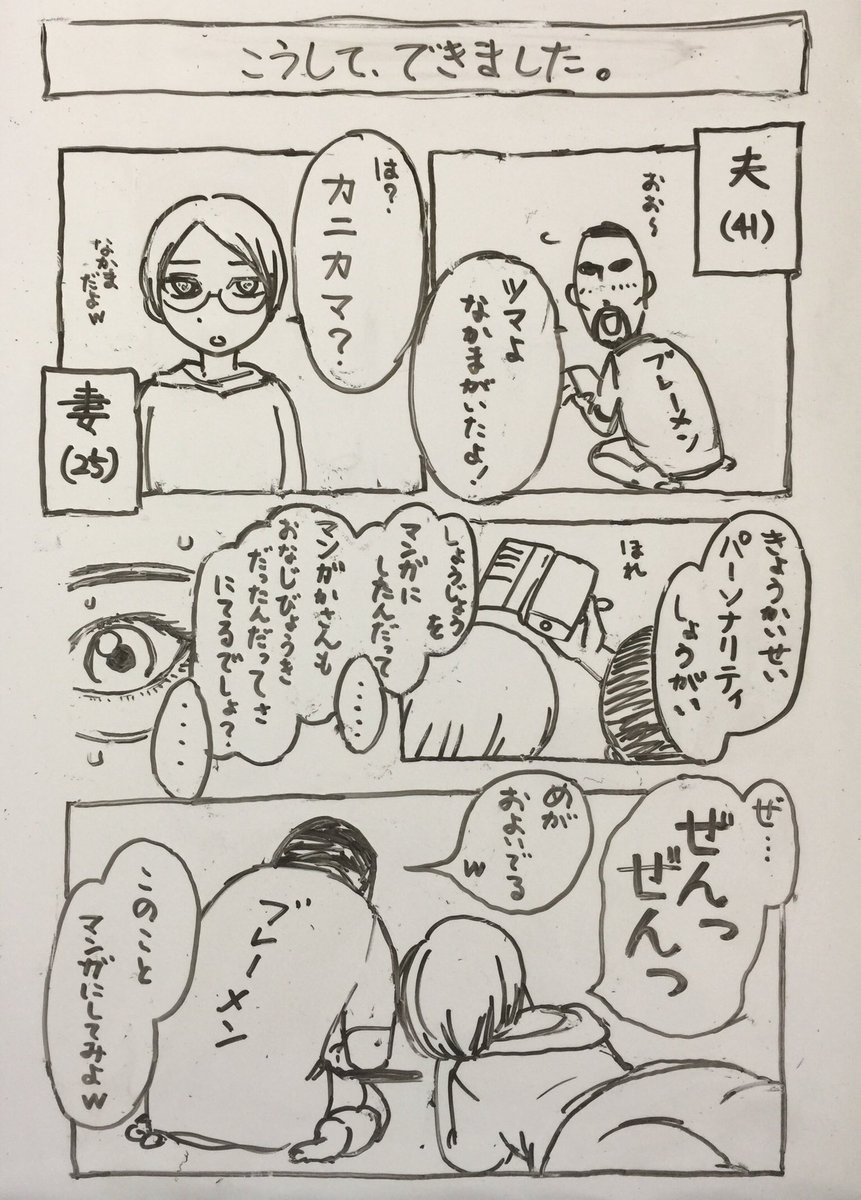 こうして、できました。
夫
(41)
おお〜
ツマよ
なかまがいたよ!
ブレーメン
は?
カニカマ?
なかま
だよw
妻
(25)
きょうかいせい
パーソナリティ
しょうがい
ほれ
しょうじょう
を
マンガに
したんだって
マンガかさんも
おなじびょうき
だったんだってさ
にてるでしょ?
・・・・
・・・・
ぜ…
ぜんっ
ぜんっ
めが
およいでる
w
ブレーメン
このこと
マンガにしてみよw